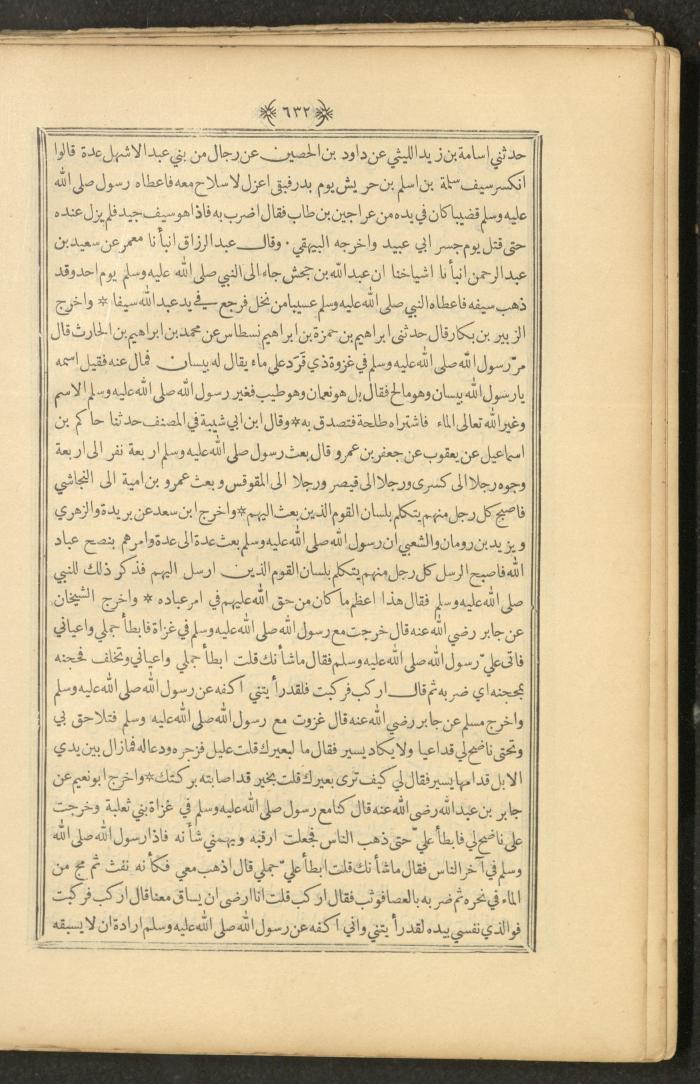 ٦٣٢
حدثني اسامة بن زيد الليثي عن داود بن الحصين عن رجال من بني عبد الاشهل عدة قالوا
انكسر سيف سلمة بن اسلم بن حريش يوم بدر فبقي اعزل لا سلاح معه فاعطاه رسول صلى الله
عليه وسلم قضيبا كان في يده من عراجين بن طاب فقال اضرب به فاذا هو سيف جيد فلم يزل عنده
حتى قتل يوم جسر ابي عبيد واخرجه البيهقي ٠ وقال عبد الرزاق انبأنا معمر عن سعيد بن
عبد الرحمن انبأنا اشياخنا ان عبد الله بن جحش جاء الى النبي صلى الله عليه وسلم يوم احد وقد
ذهب سيفه فاعطاه النبي صلى الله عليه وسلم عسيبا من نخل فرجع في يد عبد الله سيفا * واخرج
الزبير بن بكار قال حدثني ابراهيم بن حمزة بن ابراهيم نسطاس عن محمد بن ابراهيم بن الحارث قال
مرّ رسول الله صلى الله عليه وسلم في غزوة ذي قَرَد على ماء يقال له بيسان فمال عنه فقيل اسمه
يا رسول الله بيسان وهو مالح فقال بل هو نعمان وهو طيب فغير رسول الله صلى الله عليه وسلم الاسم
وغير الله تعالى الماء فاشتراه طلحة فتصدق به * وقال ابن ابي شيبة في المصنف حدثنا حاكم بن
اسماعيل عن يعقوب عن جعفر بن عمرو قال بعث رسول صلى الله عليه وسلم اربعة نفر الى اربعة
وجوه رجلا الى كسرى ورجلا الى قيصر ورجلا الى المقوقس وبعث عمرو بن امية الى النجاشي
فاصبح كل رجل منهم يتكلم بلسان القوم الذين بعث اليهم * واخرج ابن سعد عن بريدة والزهري
ويزيد بن رومان والشعبي ان رسول الله صلى الله عليه وسلم بعث عدة الى عدة وامرهم بنصح عباد
الله فاصبح الرسل كل رجل منهم يتكلم بلسان القوم الذين ارسل اليهم فذكر ذلك للنبي
صلى الله عليه وسلم فقال هذا اعظم ما كان من حق الله عليهم في امر عباده * واخرج الشيخان
عن جابر رضي الله عنه قال خرجت مع رسول الله صلى الله عليه وسلم في غزاة فابطأ جملي واعياني
فاتى عليّ رسول الله صلى الله عليه وسلم فقال ما شأنك قلت ابطأ جملي واعياني وتخلف فحجنه
بمحجنه اي ضربه ثم قال اركب فركبت فلقد رأيتني اكفه عن رسول الله صلى الله عليه وسلم
واخرج مسلم عن جابر رضي الله عنه قال غزوت مع رسول الله صلى الله عليه وسلم فتلاحق بي
وتحتى ناضح لي قد اعيا ولا يكاد يسير فقال ما لبعيرك قلت عليل فزجره ودعا له فما زال بين يدي
الابل قدامها يسير فقال لي كيف ترى بعيرك قلت بخير قد اصابته بركتك * واخرج ابو نعيم عن
جابر بن عبد الله رضى الله عنه قال كنا مع رسول صلى الله عليه وسلم في غزاة بني ثعلبة وخرجت
على ناضح لي فابطأ عليّ حتى ذهب الناس فجعلت ارقبه ويهمني شأنه فاذا رسول الله صلى الله
وسلم في آخر الناس فقال ما شأنك قلت ابطأ عليّ جملي قال اذهب معي فكأنه نفث ثم مج من
الماء في نحره ثم ضربه بالعصا فوثب فقال اركب قلت انا ارضى ان يساق معنا قال اركب فركبت
فوالذي نفسي بيده لقد رأيتني واني اكفه عن رسول الله صلى الله عليه وسلم ارادة ان لا يسبقه